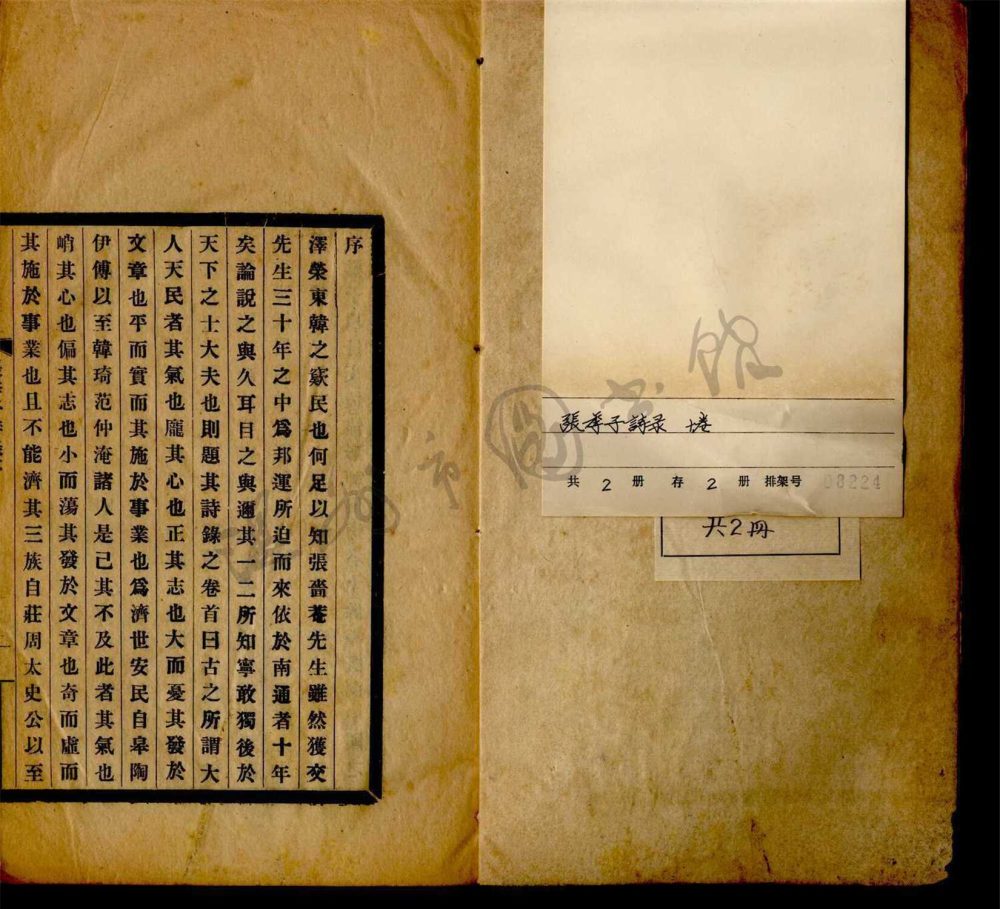 張季子詩录 十卷
共 2 册 存 2 册 排架号 08224
共2册
序
澤榮東韓之窾民也何足以知張嗇菴先生雖然獲交
先生三十年之中爲邦運所迫而來依於南通者十年
矣論說之與久耳目之與邇其一二所知寧敢獨後於
天下之士大夫也則題其詩錄之卷首曰古之所謂大
人天民者其氣也龐其心也正其志也大而憂其發於
文章也平而實而其施於事業也爲濟世安民自皋陶
伊傅以至韓琦范仲淹諸人是已其不及此者其氣也
峭其心也偏其志也小而蕩其發於文章也奇而虛而
其施於事業也且不能濟其三族自莊周太史公以至
市圖書館